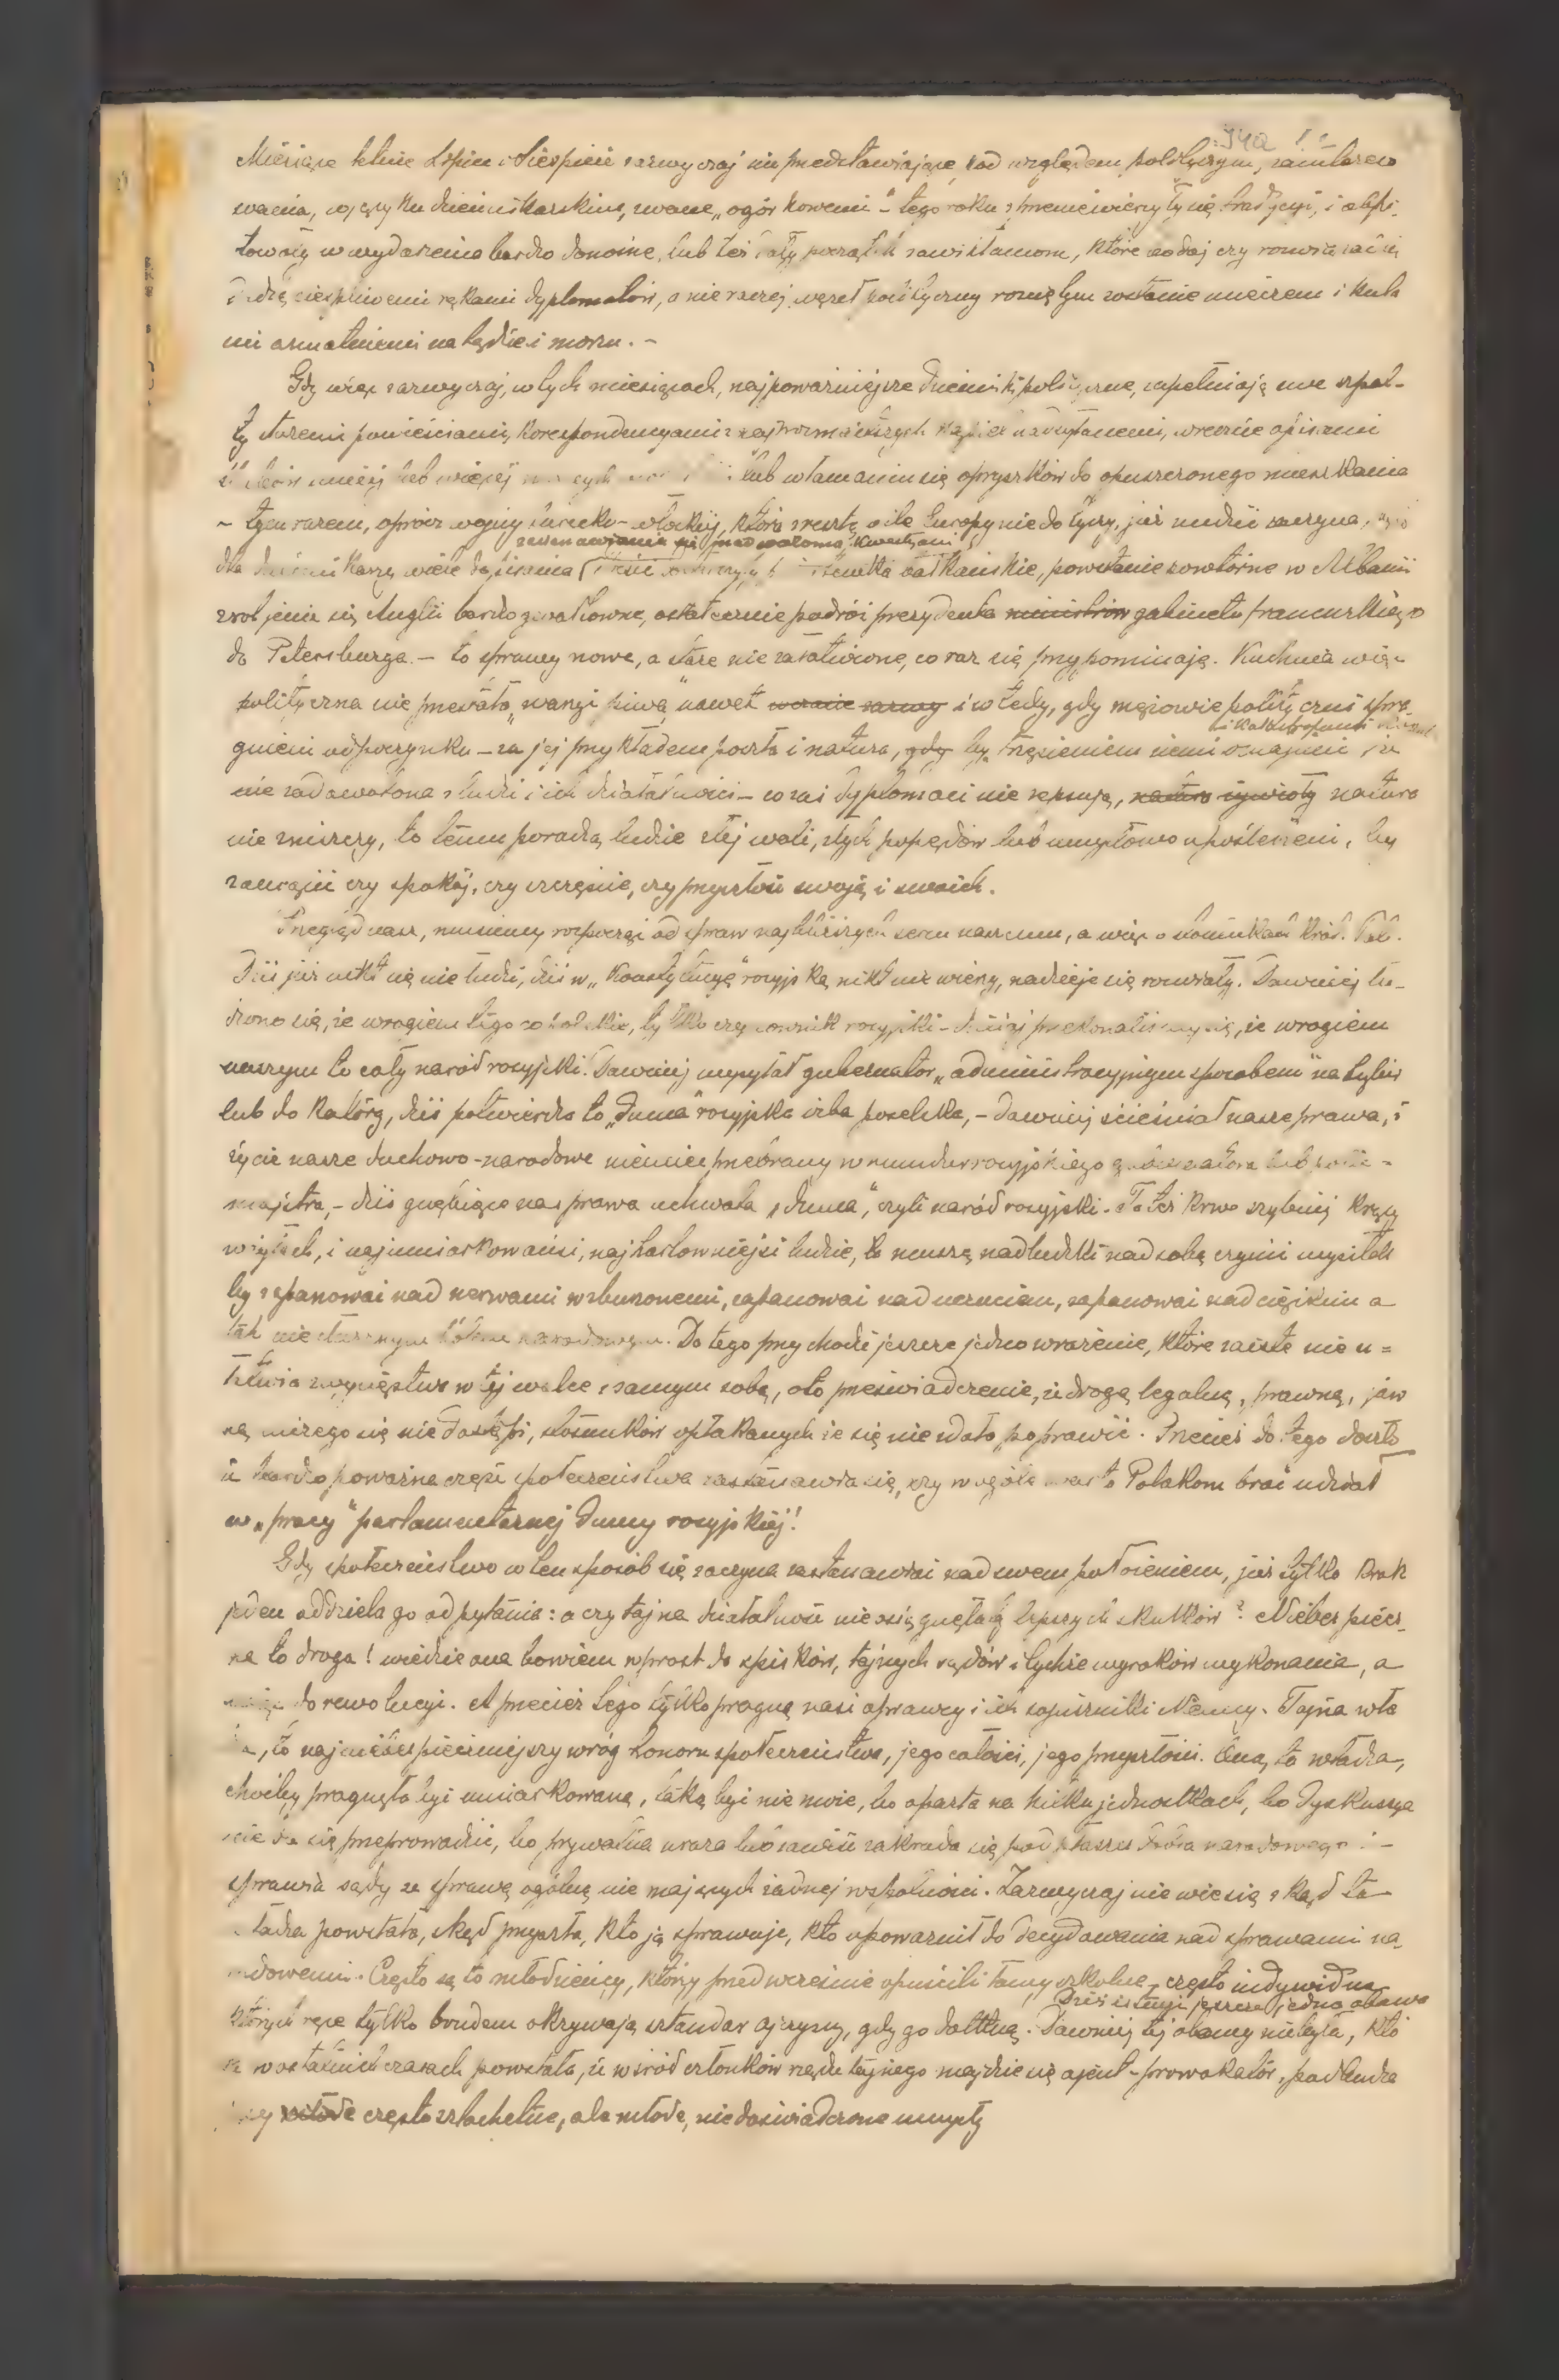 Miesiące letnie Lipiec i Sierpień zazwyczaj nie przedstawiające pod względem politycznym, zaintereso
wania, w języku dziennikarskim, zwane „ogórkowemi" – tego roku sprzeniewierzyły się tradycyi, i obfi-
towały w wydarzenia bardzo donośne, lub też dały początek zawikłaniom, które bodaj czy rozwiązać się
dadzą cierpliwemi rękami dyplomatów, a nie raczej węzeł polityczny rozciętym zostanie mieczem i kula
mi armatniemi na lądzie i morzu. –
Gdy więc zazwyczaj, w tych miesiącach, najpoważniejsze dzienniki polityczne, zapełniają swe szpal-
ty staremi powieściami, korespondencyami z najrozmaitszych kąpiel nadsyłanemi, wreszcie opisami
mniej lub więcej lub włamaniu się opryszków do opuszczonego mieszkania
– tym razem, oprócz wojny turecko-włoskiej, która zresztą o ile Europy nie dotyczy, już nudzić zaczyna,
zastanawiania się przed wieloma kwestyami
dla dziennikarzy wiele do pisania bałkańskie, powstanie powtórne w Albanii
zbrojenie się Anglii bardzo gwałtowne, ostatecznie podróż prezydenta ministrów gabinetu francuskiego
do Petersburga. – to sprawy nowe, a stare nie załatwione, co raz się przypominają. Kuchnia więc
polityczna nie przestała „warzyć piwa" nawet wczasie i wtedy, gdy mężowie polityczni spra-
i katastrofami
gnieni odpoczynku – za jej przykładem poszła i natura, gdy by trzęsieniem ziemi oznajmić że
nie zadowolona z ludzi i ich działalności – co zaś dyplomaci nie zepsują, natura żywioły natura
nie zniszczy, to temu poradzą ludzie złej woli, złych popędów lub umysłowo upośledzeni, by
zamącić czy spokój, czy szczęście, czy przyszłość swoją i swoich.
Przegląd nasz, musimy rozpocząć od spraw najbliższych sercu naszemu, a więc o stosunkach Król. Pol.
Dziś już nikt się nie łudzi, dziś w „Konstytucyę" rosyjską nikt nie wierzy, nadzieje się rozwiały. Dawniej łu-
dzono się, że wrogiem tego co polskie, tylko czynownik rosyjski – dzisiaj przekonaliśmy się, że wrogiem
naszym to cały naród rosyjski. Dawniej wysyłał gubernator „administracyjnym sposobem" na Sybir
lub do katorg, dziś potwierdza to „Duma" rosyjska izba poselska, – dawniej ścieśniał nasze prawa, i
życie nasze duchowo-narodowe niemiec przebrany w mundur rosyjskiego gubernatora lub polic-
majstra, – dziś gnębiące nas prawa uchwala „duma", czyli naród rosyjski. To też krew szybciej krąży
w żyłach, i najumiarkowańsi, najhartowniejsi ludzie, to muszą nadludzki nad sobą czynić wysiłek
by zapanować nad nerwami wzburzonemi, zapanować nad uczuciem, zapanować nad ciężkim a
tak nieustannym bólem narodowym. Do tego przychodzi jeszcze jedno wrażenie, które zaiste nie u-
łatwia zwycięstwa w tej walce z samym sobą, oto przeświadczenie, iż drogą legalną, prawną, jaw
ną niczego się nie dostąpi, stosunków opłakanych że się nie udało poprawić. Przecież do tego doszło
iż bardzo poważna część społeczeństwa zastanawia się, czy w ogóle warto Polakom brać udział
w „pracy" parlamentarnej Dumy rosyjskiej!
Gdy społeczeństwo w ten sposób się zaczyna zastanawiać nad swem położeniem, już tylko krok
jeden oddziela go od pytania: a czy tajna działalność nie osiągnęłaby lepszych skutków? Niebezpiecz-
na to droga! wiedzie ona bowiem wprost do spisków, tajnych sądów i tychże wyroków wykonania, a
więc do rewolucyi. A przecież tego tylko pragną nasi oprawcy i ich sojusznicy Niemcy. Tajna wła
dza, to najniebezpieczniejszy wróg honoru społeczeństwa, jego całości, jego przyszłości. Ona, ta władza,
chociby pragnęła być umiarkowaną, taką być nie może, bo oparta na kilku jednostkach, bo dyskusya
nie da się przeprowadzić, bo prywatna uraza lub zawiść zakrada się pod płaszcz dobra narodowego i –
sprawia sądy ze sprawą ogólną nie mających żadnej wspólności. Zazwyczaj nie wie się skąd ta
władza powstała, skąd przyszła, kto ją sprawuje, kto upoważnił do decydowania nad sprawami na-
rodowemi. Często są to młodzieńcy, którzy przedwcześnie opuścili ławy szkolne, często indywidua
Dziś istnieje jeszcze jedna obawa
których ręce tylko brudem okrywają sztandar ojczyzny, gdy go dotkną. Dawniej tej obawy nie było, któ
ra w ostatnich czasach powstała, iż wśród członków rządu tajnego znajdzie się ajent-prowokator, podburza
jący młode często szlachetne, ale młode, niedoświadczone umysły